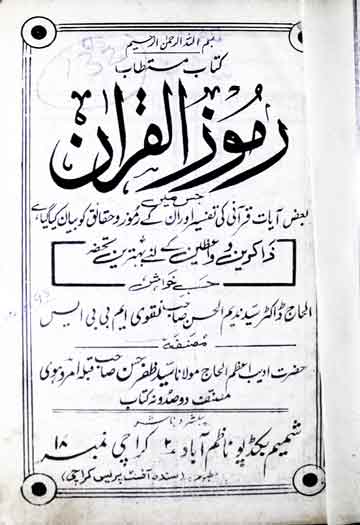 بسم اللہ الرحمن الرحیم
کتاب مستطاب
رموز القرآن
جس میں
بعض آیات قرآنی کی تفسیر اور ان کے رموز و حقائق کو بیان کیا گیا ہے
ذاکرین و واعظین کے لئے بہترین تحفہ
حسب خواہش
الحاج ڈاکٹر سید ندیم الحسن صاحب نقوی ایم بی بی ایس
مصنفہ
حضرت ادیب اعظم الحاج مولانا سید ظفر حسن صاحب قبلہ امروہوی
مصنف دو صد و نہ کتاب
ناشر
شمیم بکڈپو ناظم آباد ۲ کراچی نمبر ۱۸
مطبوعہ (سندھ آفسٹ پریس کراچی)